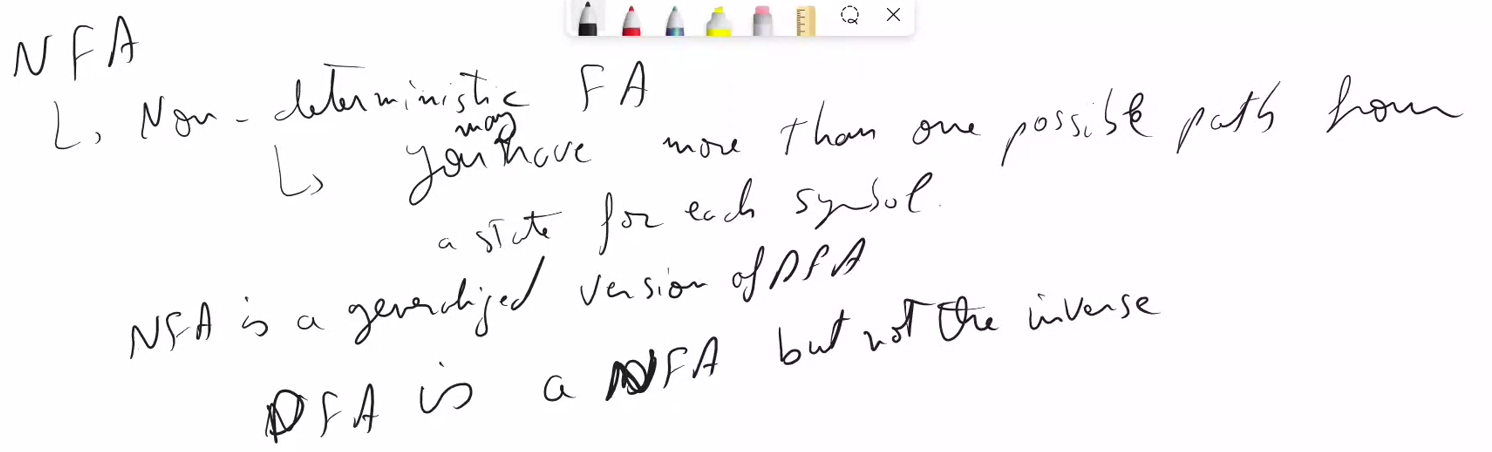 NFA
↳ Non-deterministic FA
↳ you may have more than one possible path from
a state for each symbol.
NFA is a generalized version of DFA
DFA is a NFA but not the inverse